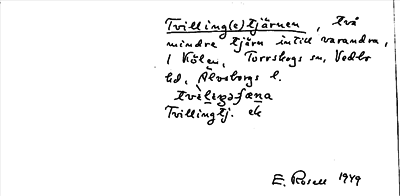 Tvilling(e)tjärnen, två
mindre tjärn intill varandra,
i Kölen, Torrskogs sn, Vedbo
hd, Älvsborgs l.
Tvillingtj. ek
E. Rosell 1949